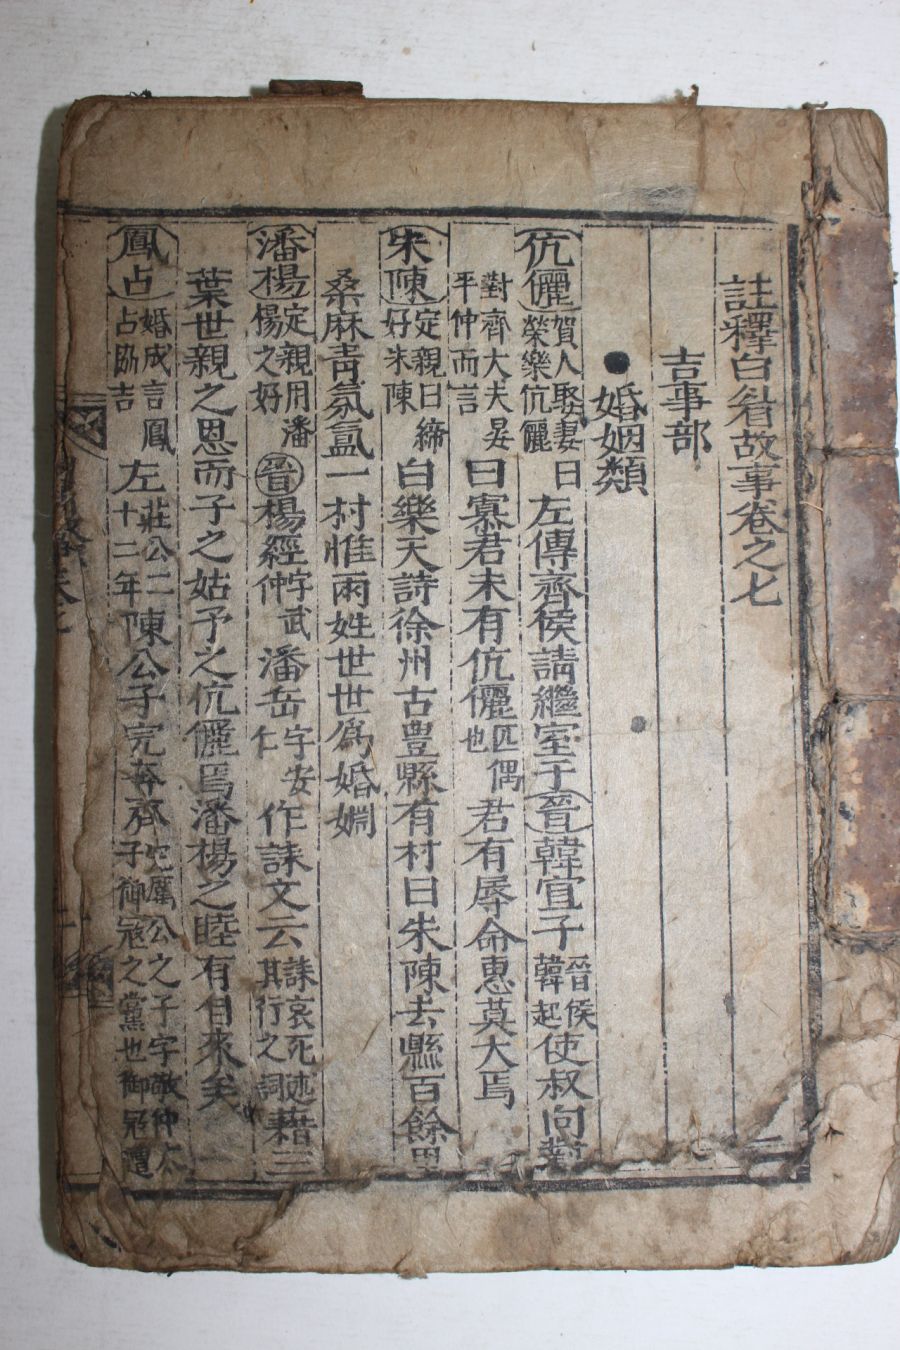 註釋白眉故事卷之七
吉事部
●婚姻類
伉儷 賀人娶妻曰榮樂伉儷 左傳齊侯請繼室于晉韓宣子 晉侯韓起 使叔向對
對齊大夫晏平仲而言 曰寡君未有伉儷 匹偶也 君有辱命惠莫大焉
朱陳 定親曰締好朱陳 白樂天詩徐州古豊縣有村曰朱陳去縣百餘里
桑麻青氛氳一村惟兩姓世世爲婚婣
潘楊 定親用潘楊之好 晉楊經 字武仲 潘岳 字安仁 作誄文云 誄哀死述其行之詞 藉三
葉世親之恩而子之姑予之伉儷焉潘楊之睦有自來矣
鳳占 婚成言鳳占勖吉 左 莊公二十二年 陳公子完奔齊 厲公之子字敬仲 子御冦之黨也御冦遭